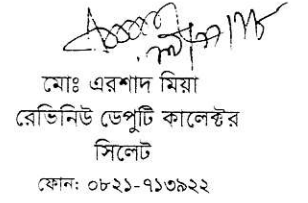 মোঃ এরশাদ মিয়া
রেভিনিউ ডেপুটি কালেক্টর
সিলেট
ফোন: ০৮২১-৭১৩৯২২